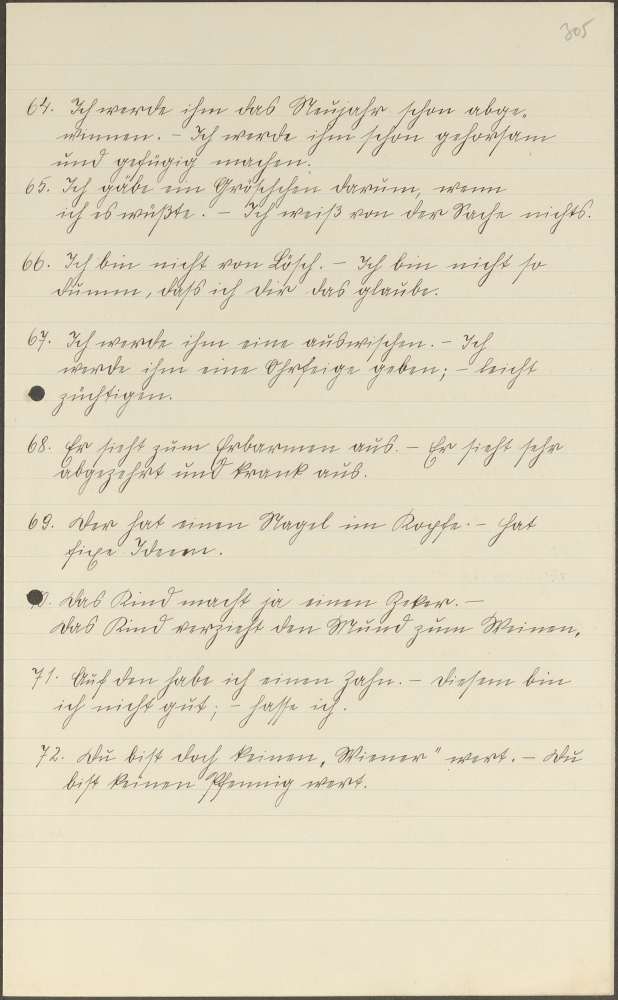 305
64. Ich werde ihm das Neujahr schon abge-
winnen. - Ich werde ihn schon gehorsam
und gefügig machen.
65. Ich gäbe ein Gröschchen darum, wenn
ich es wüßte. - Ich weiß von der Sache nichts.
66. Ich bin nicht von Lösch. - Ich bin nicht so
dumm, dass ich dir das glaube.
67. Ich werde ihm eine auswischen. - Ich
werde ihm eine Ohrfeige geben; - leicht
züchtigen.
68. Er sieht zum Erbarmen aus. - Er sieht sehr
abgezehrt und krank aus.
69. Der hat einen Nagel im Kopfe. - Hat
fixe Ideen.
70. Das Kind macht ja einen Zeker. -
Das Kind verzieht den Mund zum Weinen.
71. Auf den habe ich einen Zahn. - Diesem bin
ich nicht gut; - hasse ich.
72. Du bist doch keinen "Wiener" wert. - Du
bist keinen Pfennig wert.